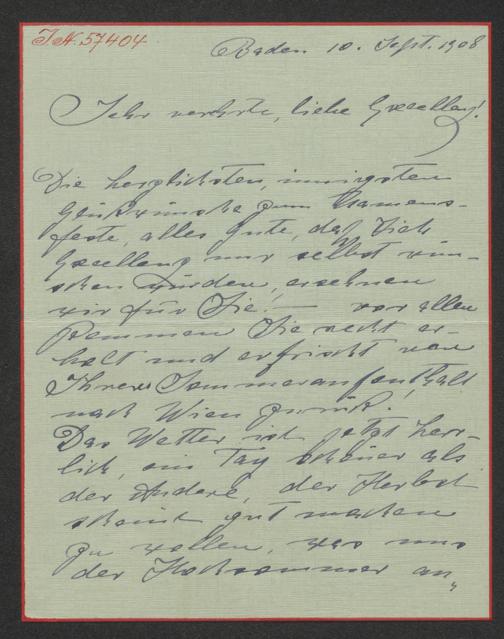 J.N. 57404
Baden 10. Sept. 1908
Sehr verehrte, liebe Excellenz!
Die herzlichsten, innigsten
Glückwünsche zum Namens-
feste, alles Gute, daß Sich
Excellenz nur selbst wün-
schen würden, ersehnen
wir für Sie! — vor allem
kommen Sie recht er-
holt und erfrischt von
Ihrem Sommeraufenthalt
nach Wien zurück!
Das Wetter ist jetzt herr-
lich, ein Tag schöner als
der Andere, der Herbst
scheint gut machen
zu wollen, was uns
der Hochsommer an,,